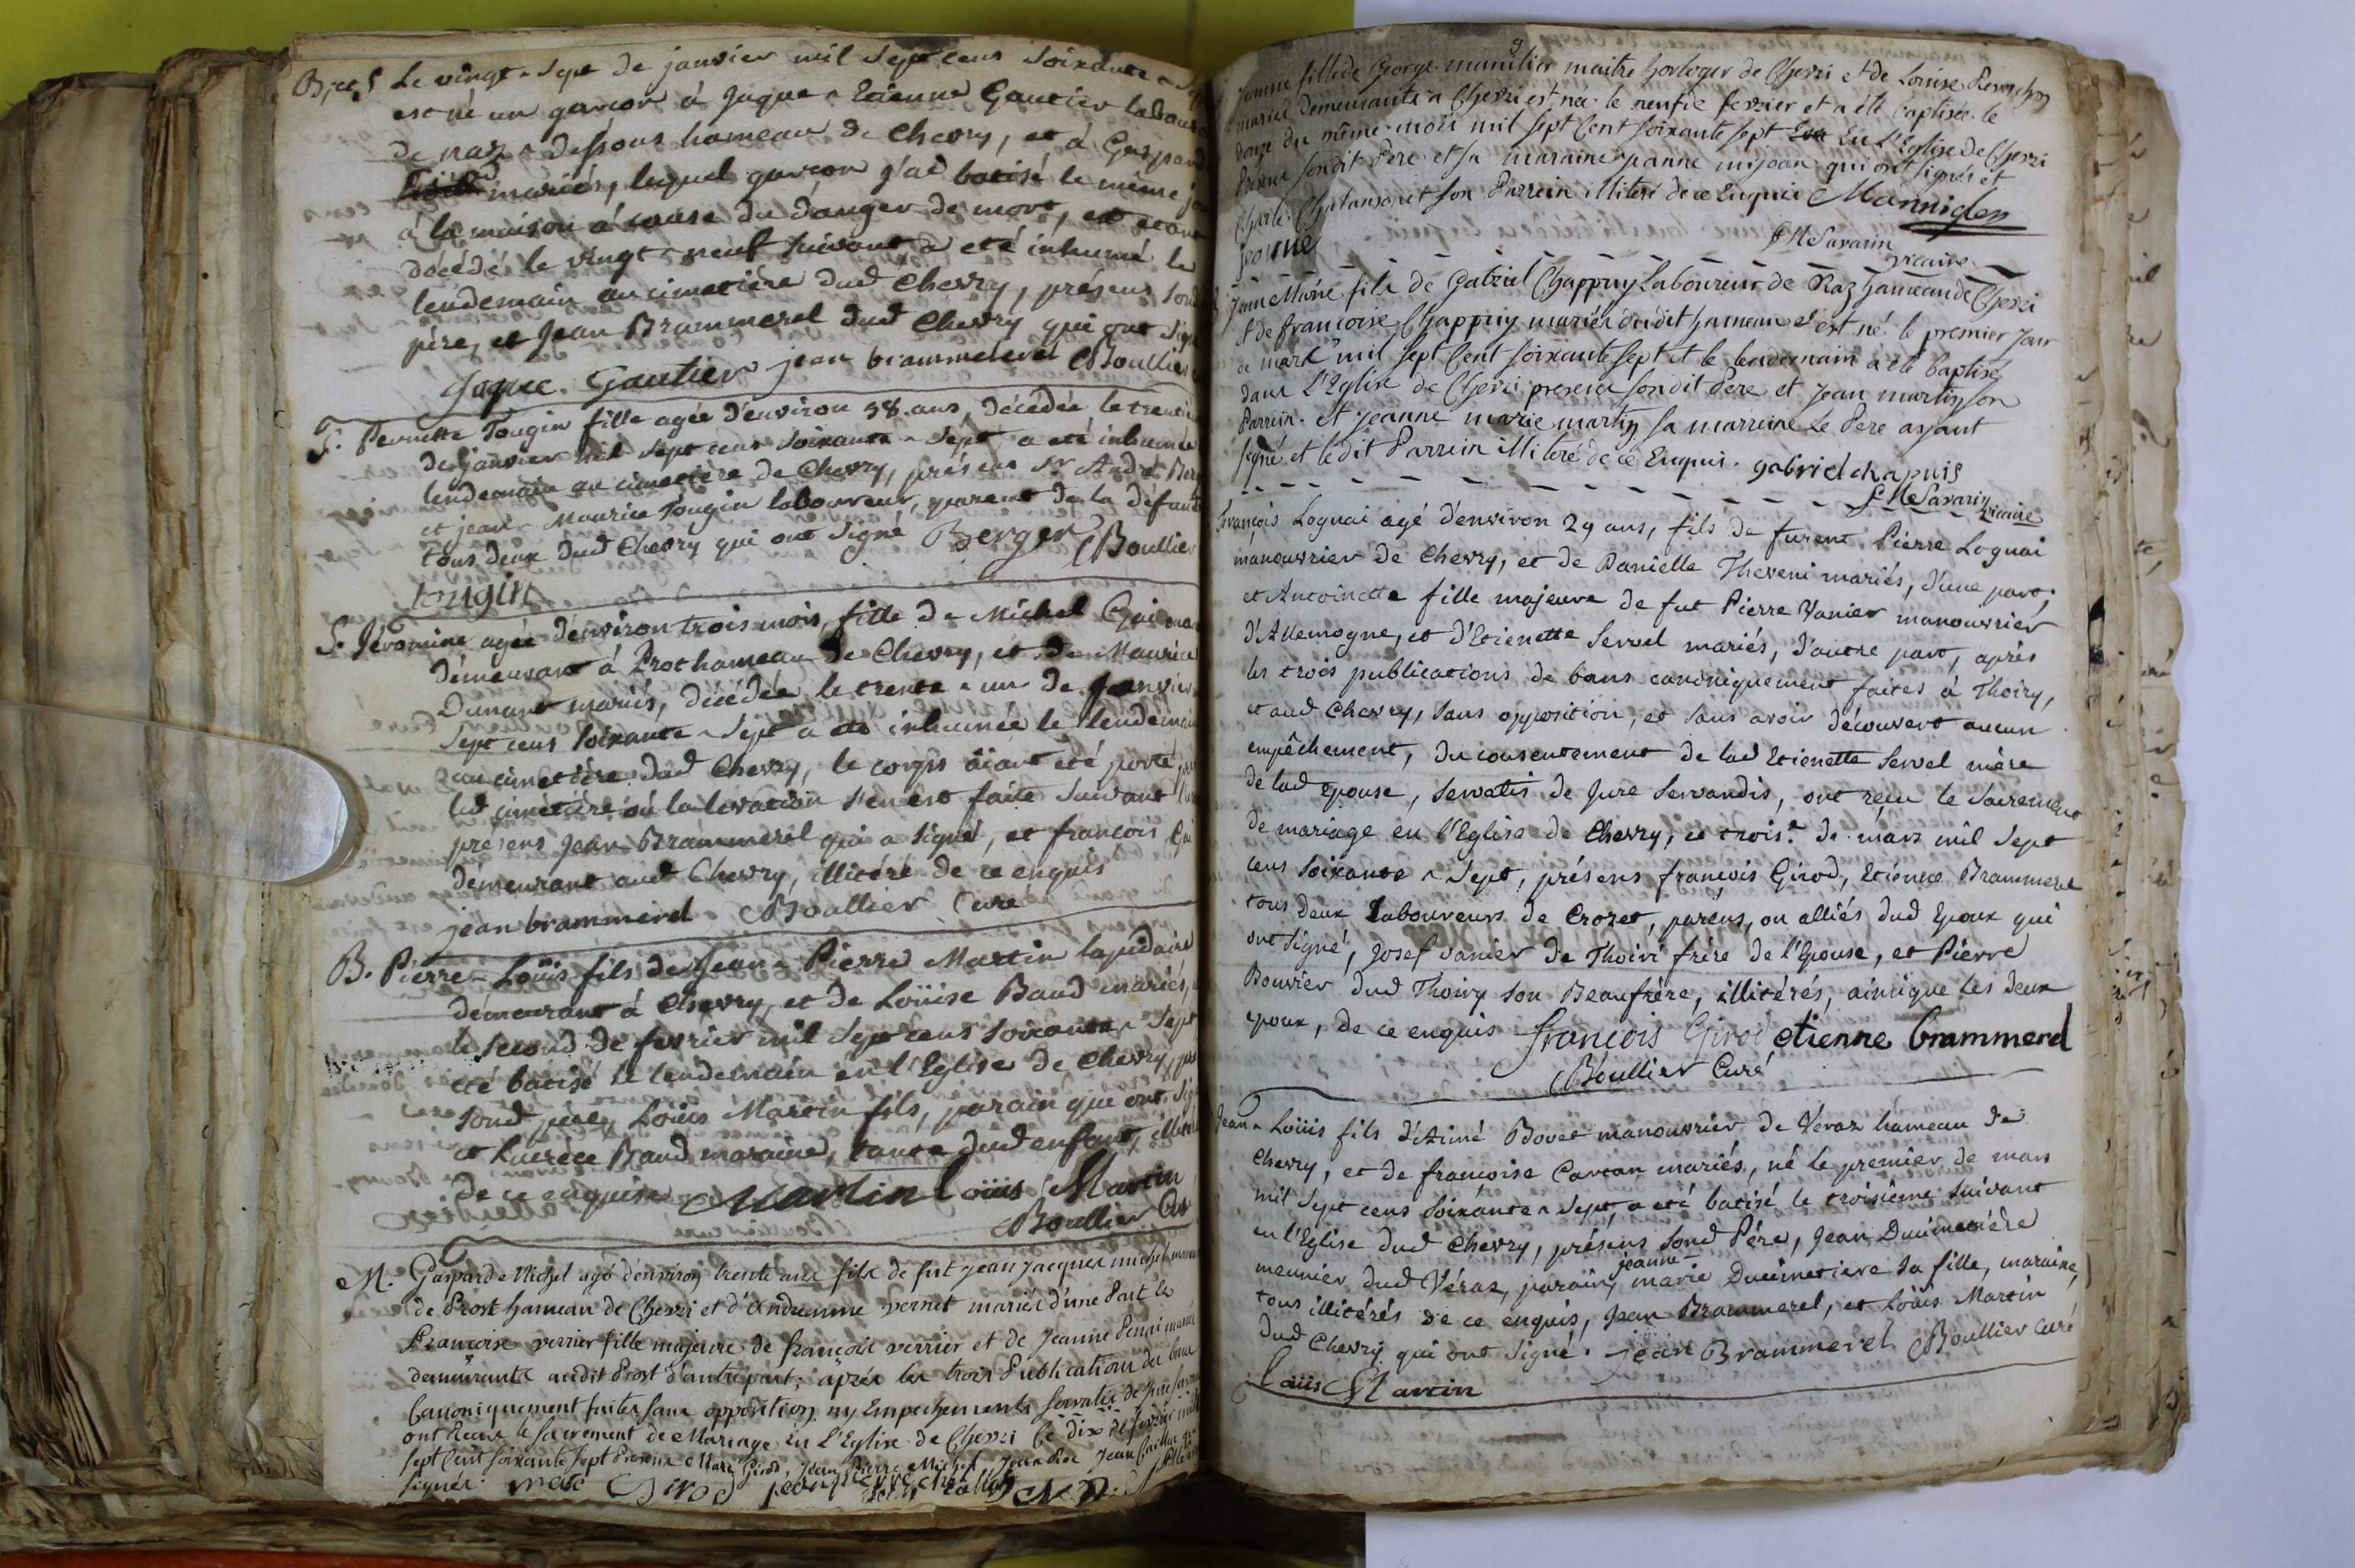 B. et S. Le vingt-sept de janvier mil sept cens soixante-sept
est né un garçon à Jaque-Etienne Gautier labour
de naz-dessous hameau de Chevry, et à Gasparde
mariés, lequel garçon j'ai batisé le même jou
à la maison à cause du danger de mort, et étant
décédé le vingt-neuf suivant a eté inhumé le
lendemain au cimetière dud Chevry, présens sond
père, et Jean Brammerel dud Chevry qui ont sign
Jaque Gautier jean brammeleret Boullier
S. Pernette Tougin fille agée d'environ 58 ans, décédée le trent
de janvier mil sept cens soixante-sept a eté inhumée
lendemain au cimetière de Chevry, présens Sr André Ber
et jean-Maurice Tougin laboureur, parens de la défunte
tous deux dud Chevry qui ont signé Berger Boullier
tougin
S. Jéromine agée d'environ trois mois, fille de Michel
démeurant à Prost hameau de Chevry, et de Maurise
Dunant mariés, décédée le trente-un de janvier
sept cens soixante-sept a eté inhumée le lendemain
au cimetière dud Chevry, le corps aïant eté porté
led cimetière où la levation s'en est faite suivant
présens Jean Brammerel qui a signé, et françois
démeurant aud Chevry, illitéré de ce enquis
jean brammerel Boullier Curé
B. Pierre-Loüis fils de Jean-Pierre Martin lapidaire
démeurant à Chevry, et de Loüise Baud mariés,
le second de fevrier mil sept cens soixante-sept
eté batisé le lendemain en l'Eglise de Chevry,
sond père, Loüis Martin fils, parain qui ont sig
et Lucrèce Baud maraine, tante dud enfant, illité
de ce enquise Martin Loüis Martin
Boullier Cur
M. Gaspard Michel agé d'environ trente ans fils de fut jean jacques michel
de Prost hameau de Chevri et d' vernet mariés d'une Part et
Françoise verrier fille majeure de françois verrier et de jeanne
demeurante audit Prost d'autre part; après les trois Publications des bans
Canoniquement faites sans opposition ny Empechements servatis de jure
ont Receu le sacrement de Mariage En L'Eglise de Chevri le dix de fevrier mil
sept Cent soixante sept Presens Marc Girod, jean pierre Michel, jean
signés. marc Girod
9
jeanne fille de George manilier maitre horloger de Chevri et de Louise
mariés demeurants a Chevri est née le neuf de fevrier et a été baptisée le
douze du même mois mil sept Cent soixante sept En L'Eglise de Chevri
Presens sondit Pere et sa maraine panne mijean qui ont signés et
Charle son Parrein illiteré de ce Enquis
Savarin
vicaire
jean Marie fils de Gabriel Chappuy Laboureur de Naz hameau de Chevri
et de francoise Chappuy mariés dudit hameau est né le premier jour
de mars mil sept Cent soixante sept et le lendemain a été baptisé
dans L'Eglise de Chevri presens sondit Pere et jean martin son
Parrein. et jeanne marie martin sa marreine Le Pere ayant
signé et ledit Parrein illiteré de ce Enquis. gabriel chapuis
Savarin vicaire
François Loguai agé d'environ 29 ans, fils de furent Pierre Loguai
manouvrier de Chevry, et de Danielle Theveni mariés, d'une part;
et Antoinette fille majeure de fut Pierre Vanier manouvrier
d'Allemogne, et d'Etienette Servel mariés, d'autre part, après
les trois publications de bans canoniquement faites à Thoiry,
et aud Chevry, sans opposition, et sans avoir découvert aucun
empêchement, du consentement de lad Etienette Servel mère
de lad epouse, servatis de jure servandis, ont reçu le sacrement
de mariage en l'Eglise de Chevry, ce trois.e de mars mil sept
cens soixante-sept, présens françois Girod, Etienne Brammerel
tous deux laboureurs de Crozet, parens, ou alliés dud Epoux qui
ont signé, Josef Vanier de Thoiri frère de l'Epouse, et Pierre
Bouvier dud Thoiry son Beaufrère, illitérés, ainsique les deux
epoux, de ce enquis françois Girod etienne brammerel
Boullier Curé
Jean-Loüis fils d'Aimé Bovet manouvrier de Véraz hameau de
Chevry, et de françoise Carton mariés, né le premier de mars
mil sept cens soixante-sept, a eté batisé le troisième suivant
en l'Eglise dud Chevry, présens sond Père, Jean Ducimetière
meunier dud Véraz, parain, jeanne-marie Ducimetiere sa fille, maraine,
tous illitérés de ce enquis, Jean Brammerel, et Loüis Martin
dud Chevry qui ont signé. jean Brammerel Boullier Curé
Loüis Martin